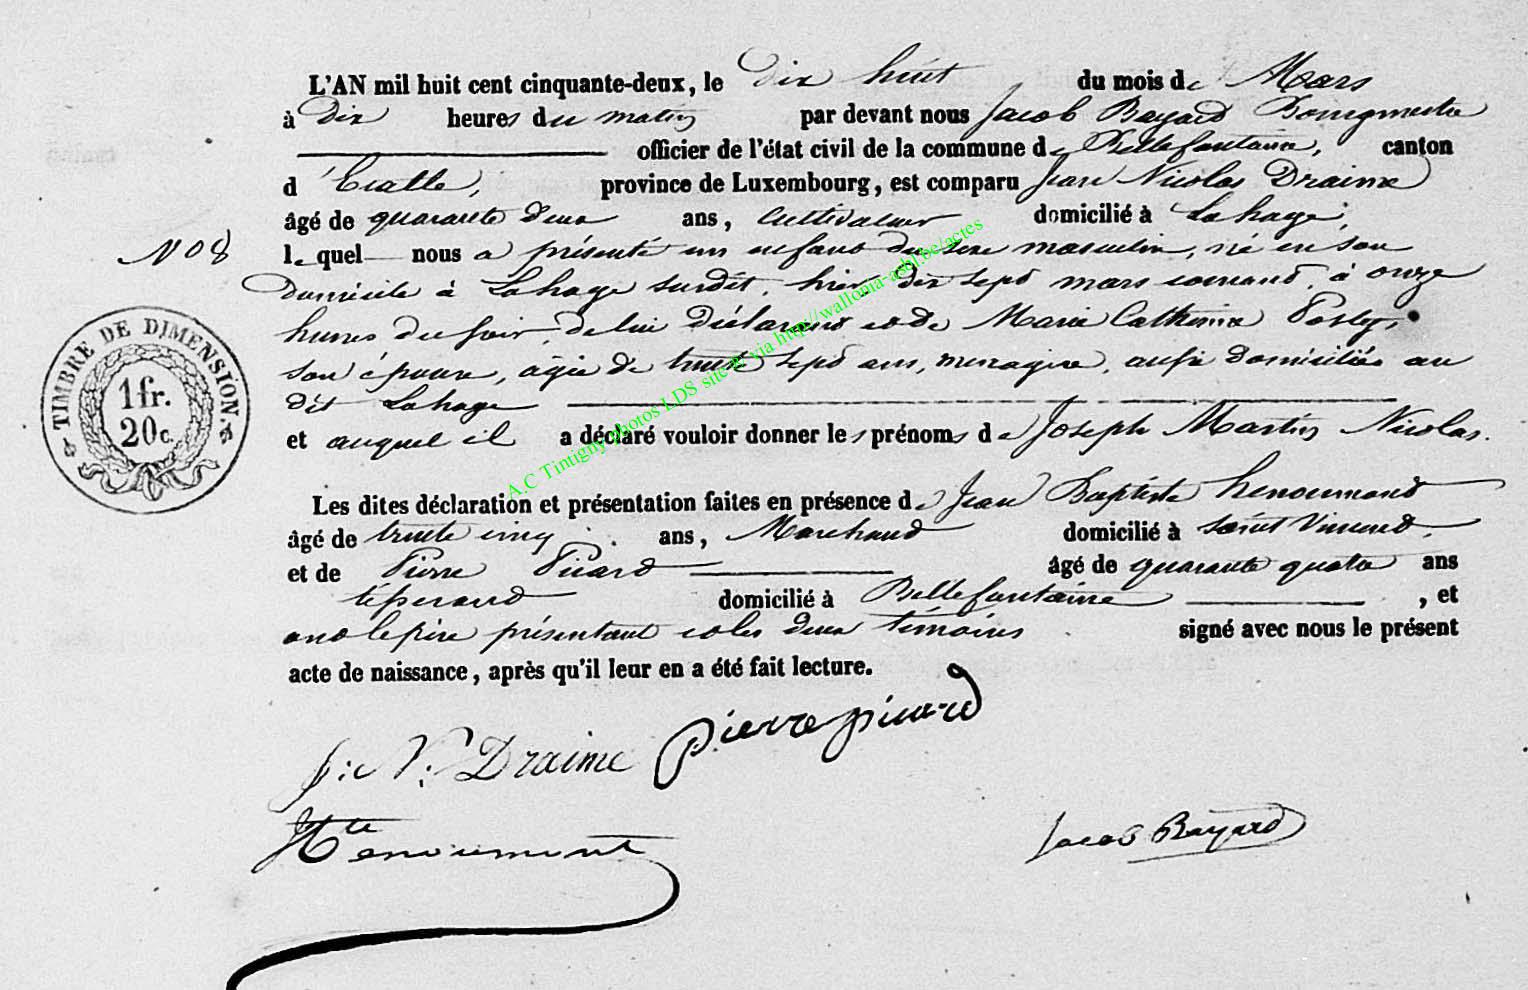 L'AN mil huit cent cinquante-deux, le dix huit du mois de Mars
à dix heures du matin par devant nous Jacob Bayard Bourgmestre
officier de l'état civil de la commune de Bellefontaine, canton
d'Etalle, province de Luxembourg, est comparu Jean Nicolas Draime
âgé de quarante deux ans, cultivateur domicilié à Lahage,
N° 8 lequel nous a présenté un enfant du sexe masculin, né en son
domicile à Lahage susdit, hier dix sept mars courant, à onze
heures du soir, de lui déclarant et de Marie Catherine
son épouse, agée de trente sept ans, menagère, aussi domiciliée au
dit Lahage
et auquel il a déclaré vouloir donner les prénoms de Joseph Martin Nicolas.
Les dites déclaration et présentation faites en présence de Jean Baptiste Henoumont
âgé de trente cinq ans, Marchand domicilié à Saint Vincent,
et de Pierre Picard âgé de quarante quatre ans
tisserand domicilié à Bellefontaine, et
ont le père présentant et les deux témoins signé avec nous le présent
acte de naissance, après qu'il leur en a été fait lecture.
J: N: Draime Pierre picard
Henoumont
Jacob Bayard
TIMBRE DE DIMENSION
1 fr.
20 c.
A.C Tintigny photos LDS site et via http://wallonia-asbl.be/actes